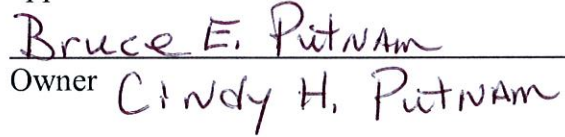 Bruce E. Putnam
Owner Cindy H. Putnam